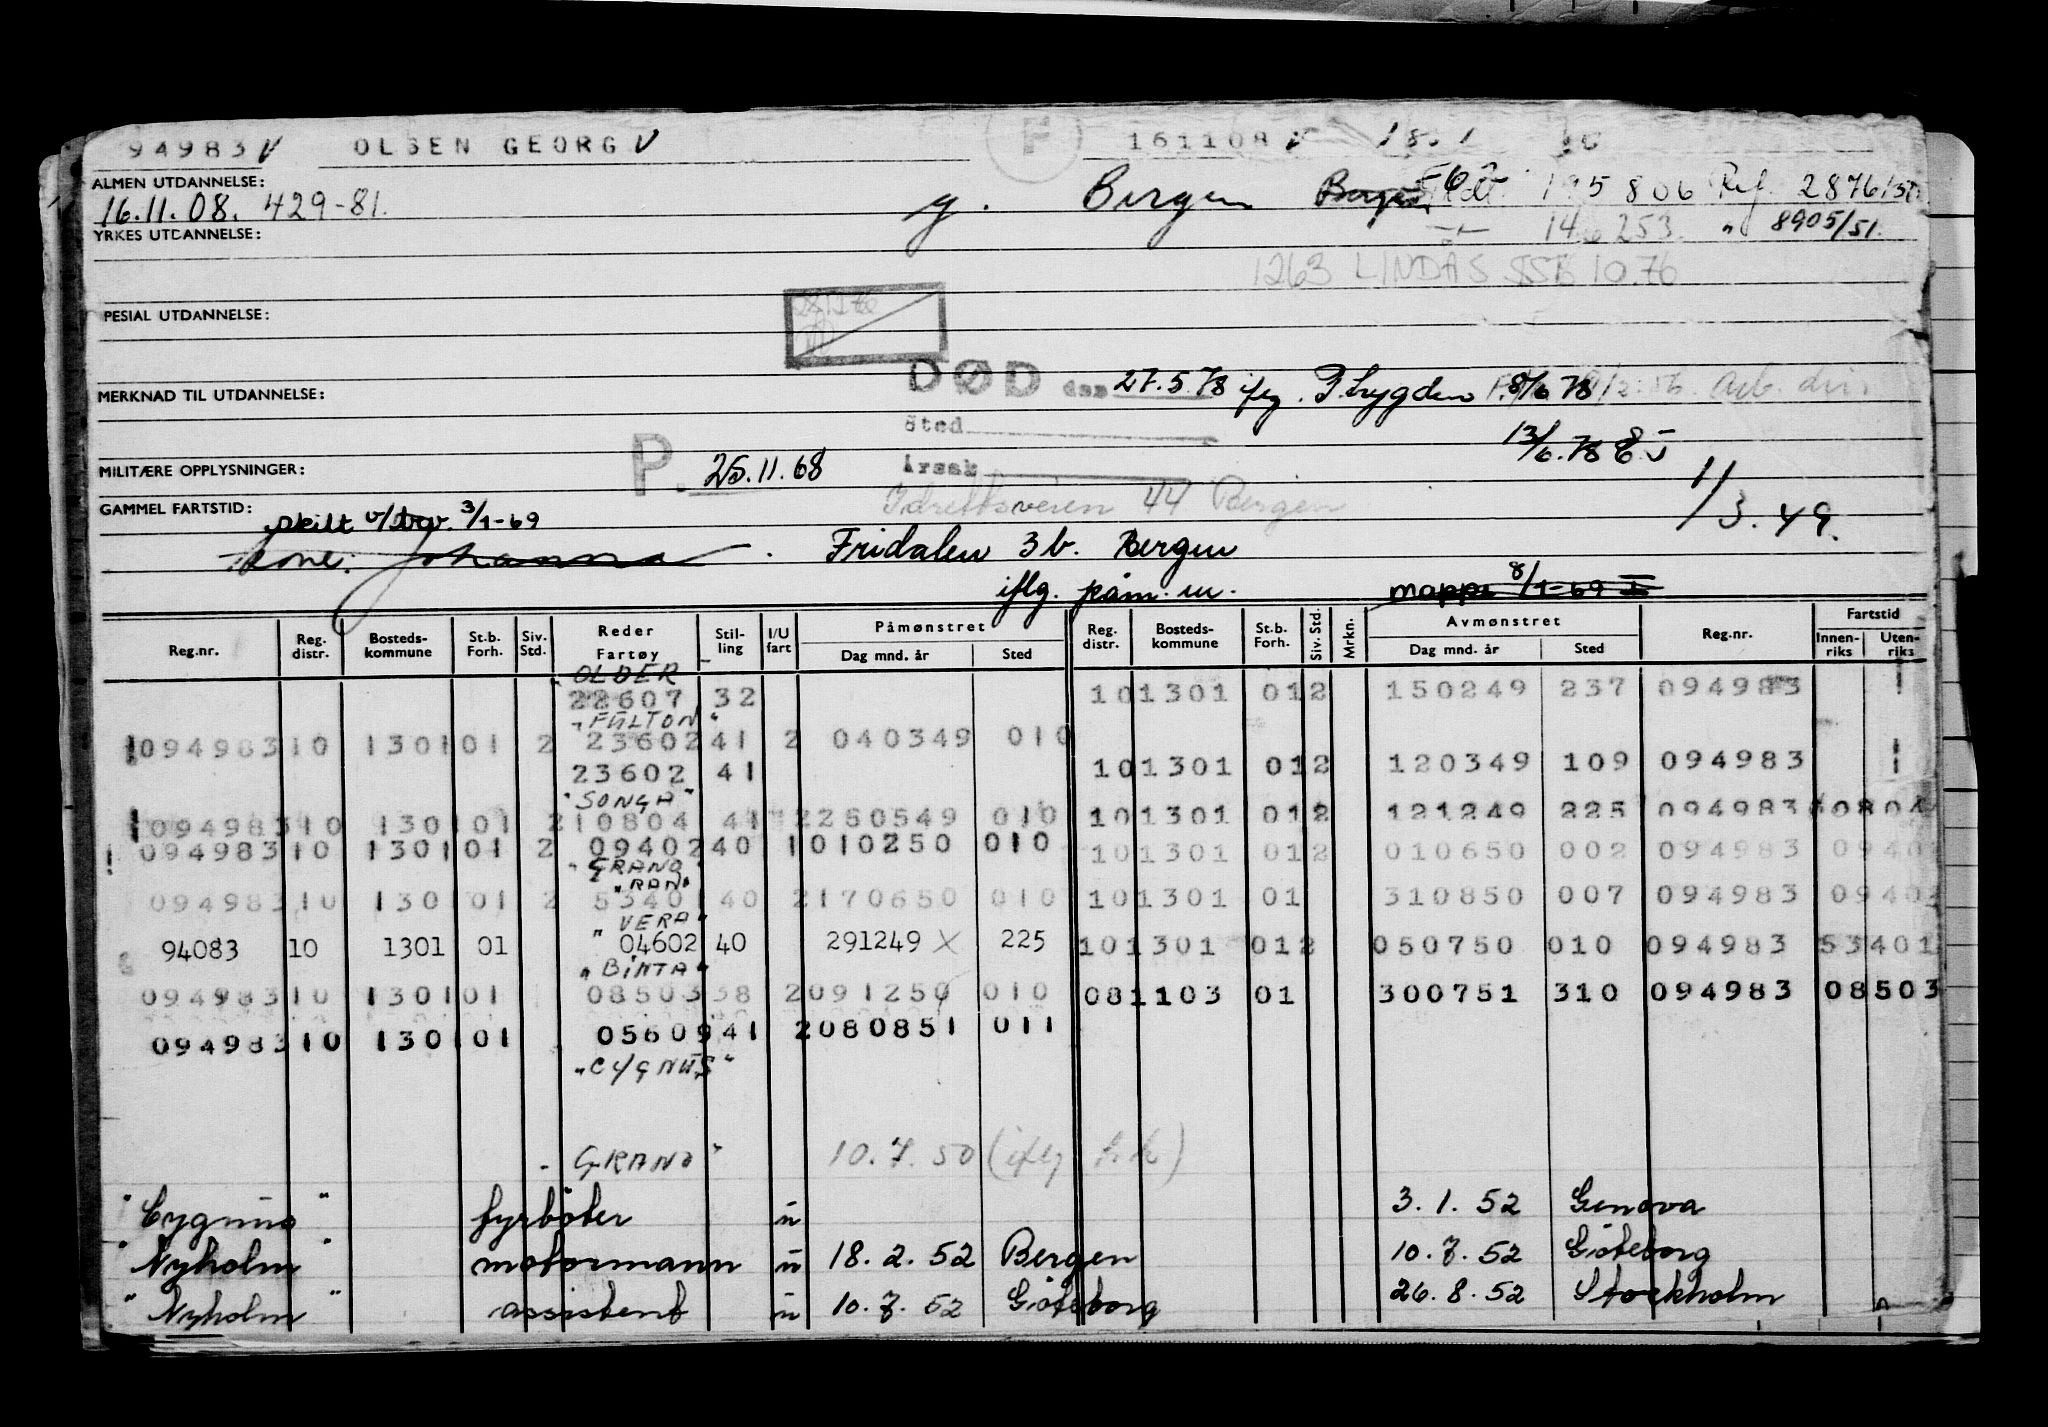 94983 V OLSEN GEORG V F 161108 18.1
ALMEN UTDANNELSE:
16.11.08. 429-81. g. Bergen 195806 Ref. 2876/50
YRKES UTDANNELSE: 146253 " 8905/51.
1263 LINDÅS SSB 10.76
PESIAL UTDANNELSE:
DØD den 27.5.78 iflg. P.trygden 8/6 78
MERKNAD TIL UTDANNELSE:
Sted
13/6.78
P. 25.11.68 Årsak
MILITÆRE OPPLYSNINGER:
Idrettsveien 44 Bergen 1/3.49.
GAMMEL FARTSTID:
skilt 3/1-69
Kone: Johanna. Fridalen 3b. Bergen
iflg. påm. m. mappe 8/1-69
Reg.nr. Reg. distr. Bosteds-kommune St.b. Forh. Siv. Std. Reder Fartøy Stil-ling I/U fart Påmønstret Dag mnd. år Sted Reg. distr. Bosteds-kommune St.b. Forh. Siv. Std. Mrkn. Avmønstret Dag mnd. år Sted Reg.nr. Fartstid Innen-riks Uten-riks
OLDER
22607 32 10 1301 01 2 150249 237 094983
"FULTON"
094983 10 1301 01 2 23602 41 2 040349 010
23602 41 10 1301 01 2 120349 109 094983
"SONGA"
094983 10 1301 01 2 10804 41 2 250549 010 10 1301 01 2 121249 225 094983 10804
094983 10 1301 01 2 09402 40 1 010250 010 10 1301 01 2 010650 002 094983 09402
"GRANO"
"RAN"
094983 10 1301 01 2 53401 40 2 170650 010 10 1301 01 310850 007 094983 09402
"VERA"
94083 10 1301 01 04602 40 291249 X 225 10 1301 01 2 050750 010 094983 53401
"BINTA"
094983 10 1301 01 08503 38 2 091250 010 08 1103 01 300751 310 094983 08503
094983 10 1301 01 05609 41 2 080851 011
"CYGNUS"
"GRANO" 10.7.50 (iflg.
"Cygnus" fyrbøter u 3.1.52 Genova
"Nyholm" motormann u 18.2.52 Bergen 10.7.52 Gøteborg
"Nyholm" assistent u 10.7.52 Gøteborg 26.8.52 Stockholm